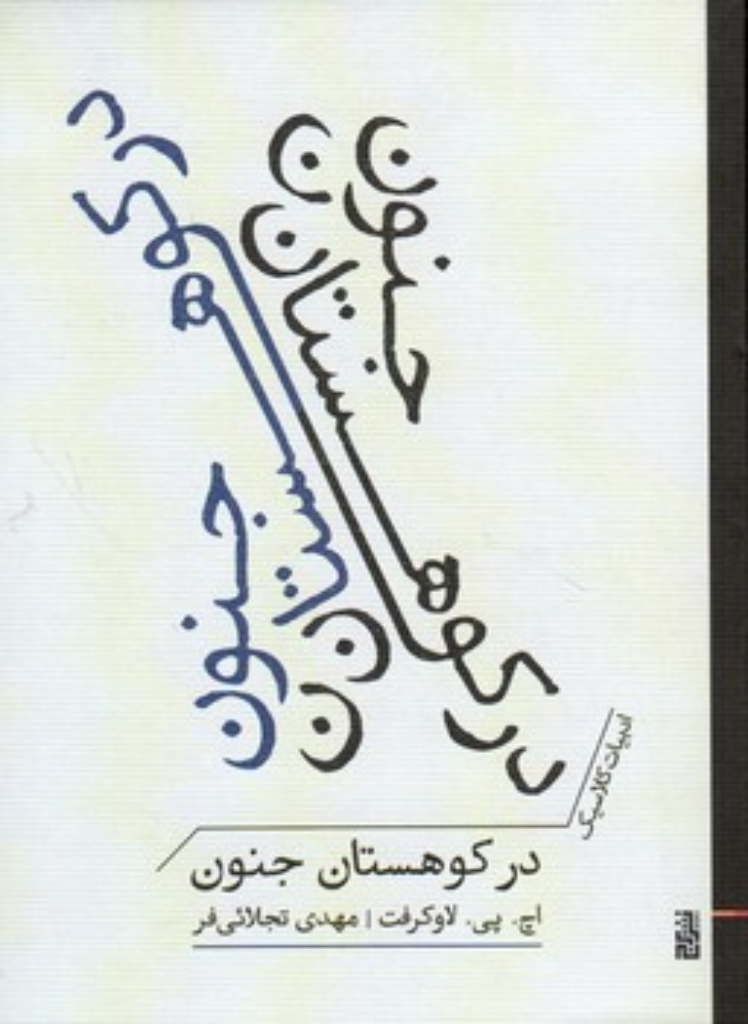 در کوهستان جنون
در کوهستان جنون
ادبیات کلاسیک
در کوهستان جنون
اچ. پی. لاوکرفت | مهدی تجلائی‌فر